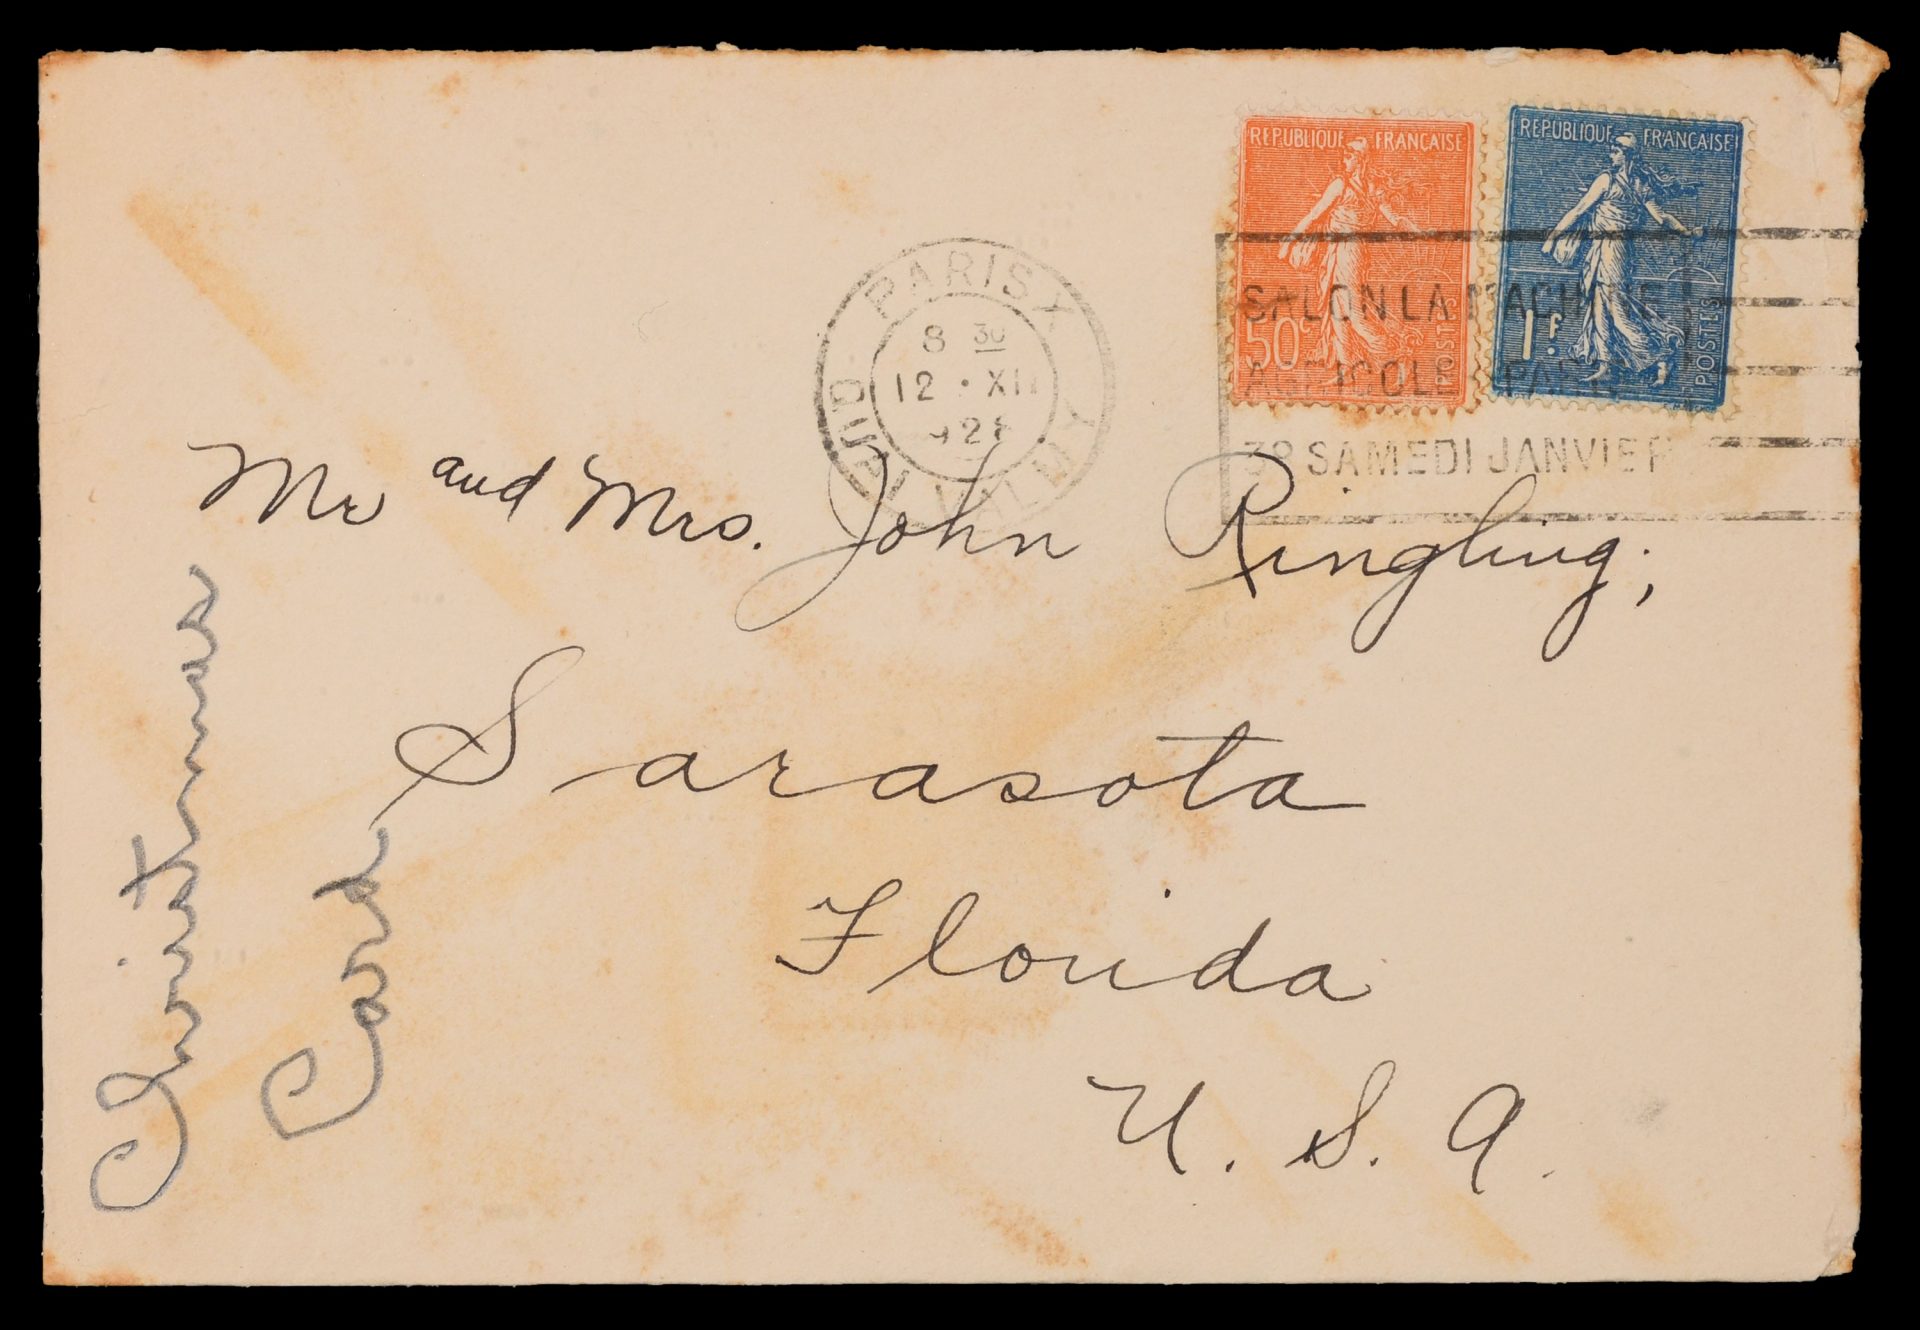 REPUBLIQUE FRANÇAISE
50c POSTES
REPUBLIQUE FRANÇAISE
1F. POSTES
PARIS X
8 30
12 · XII
SALON LA MACHINE
AGRICOLE PARIS
3e SAMEDI JANVIER
Mr and Mrs. John Ringling,
Sarasota
Florida
U. S. A.
Christmas
Card